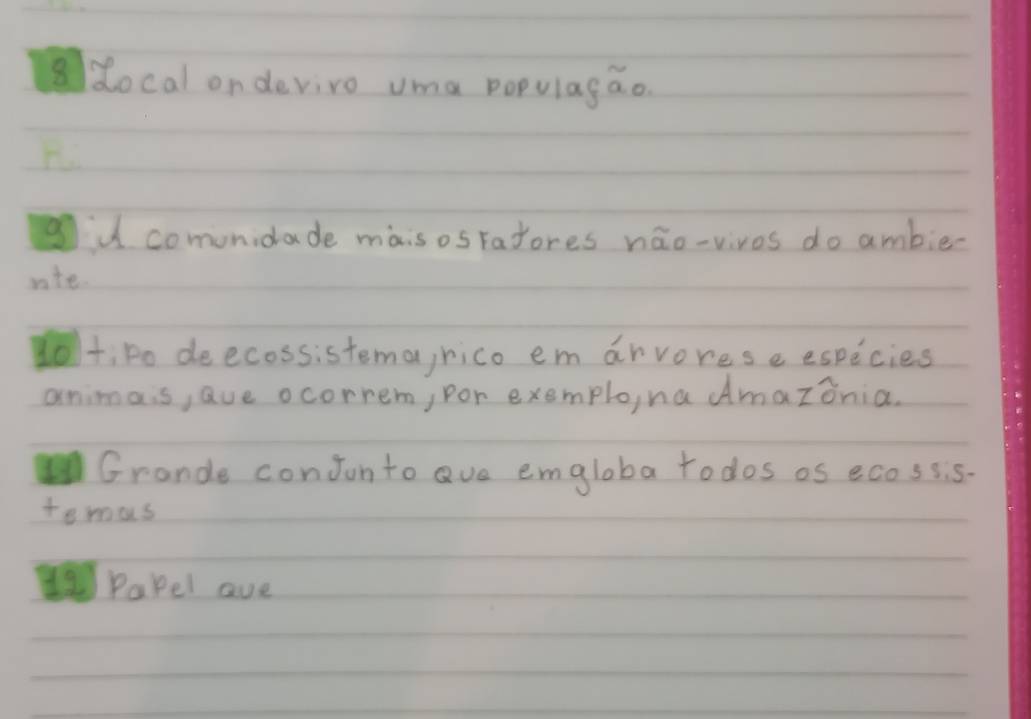 8) Local ondevivo uma população.
R:
9) A comunidade mais os fatores não-vivos do ambie-
nte.
10) tipo de ecossistema, rico em árvores e espécies
animais, que ocorrem, por exemplo, na Amazônia.
11) Grande conjunto que emgloba todos os ecossis-
temas
12) Papel que